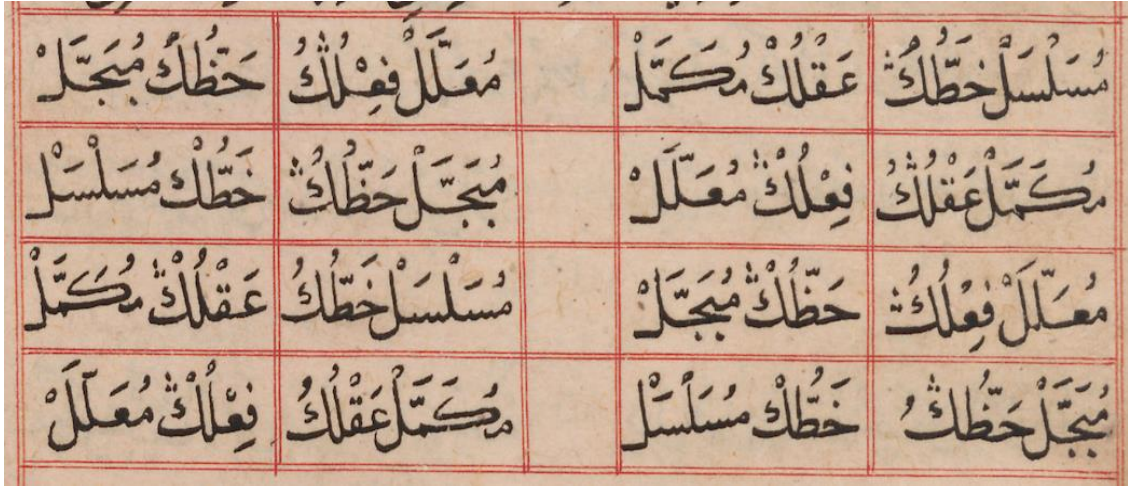 مُسَلْسَلْ خَطُّڭُ عَقْلُكْ مُكَمَّلْ مُعَلَّلْ فِعْلُڭُ حَظُّكْ مُبَجَّلْ
مُكَمَّلْ عَقْلُڭُ فِعْلُڭْ مُعَلَّلْ مُبَجَّلْ حَظُّڭُ خَطُّكْ مُسَلْسَلْ
مُعَلَّلْ فِعْلُڭُ حَظُّڭْ مُبَجَّلْ مُسَلْسَلْ خَطُّكُ عَقْلُڭْ مُكَمَّلْ
مُبَجَّلْ حَظُّڭُ خَطُّكْ مُسَلْسَلْ مُكَمَّلْ عَقْلُكُ فِعْلُڭْ مُعَلَّلْ